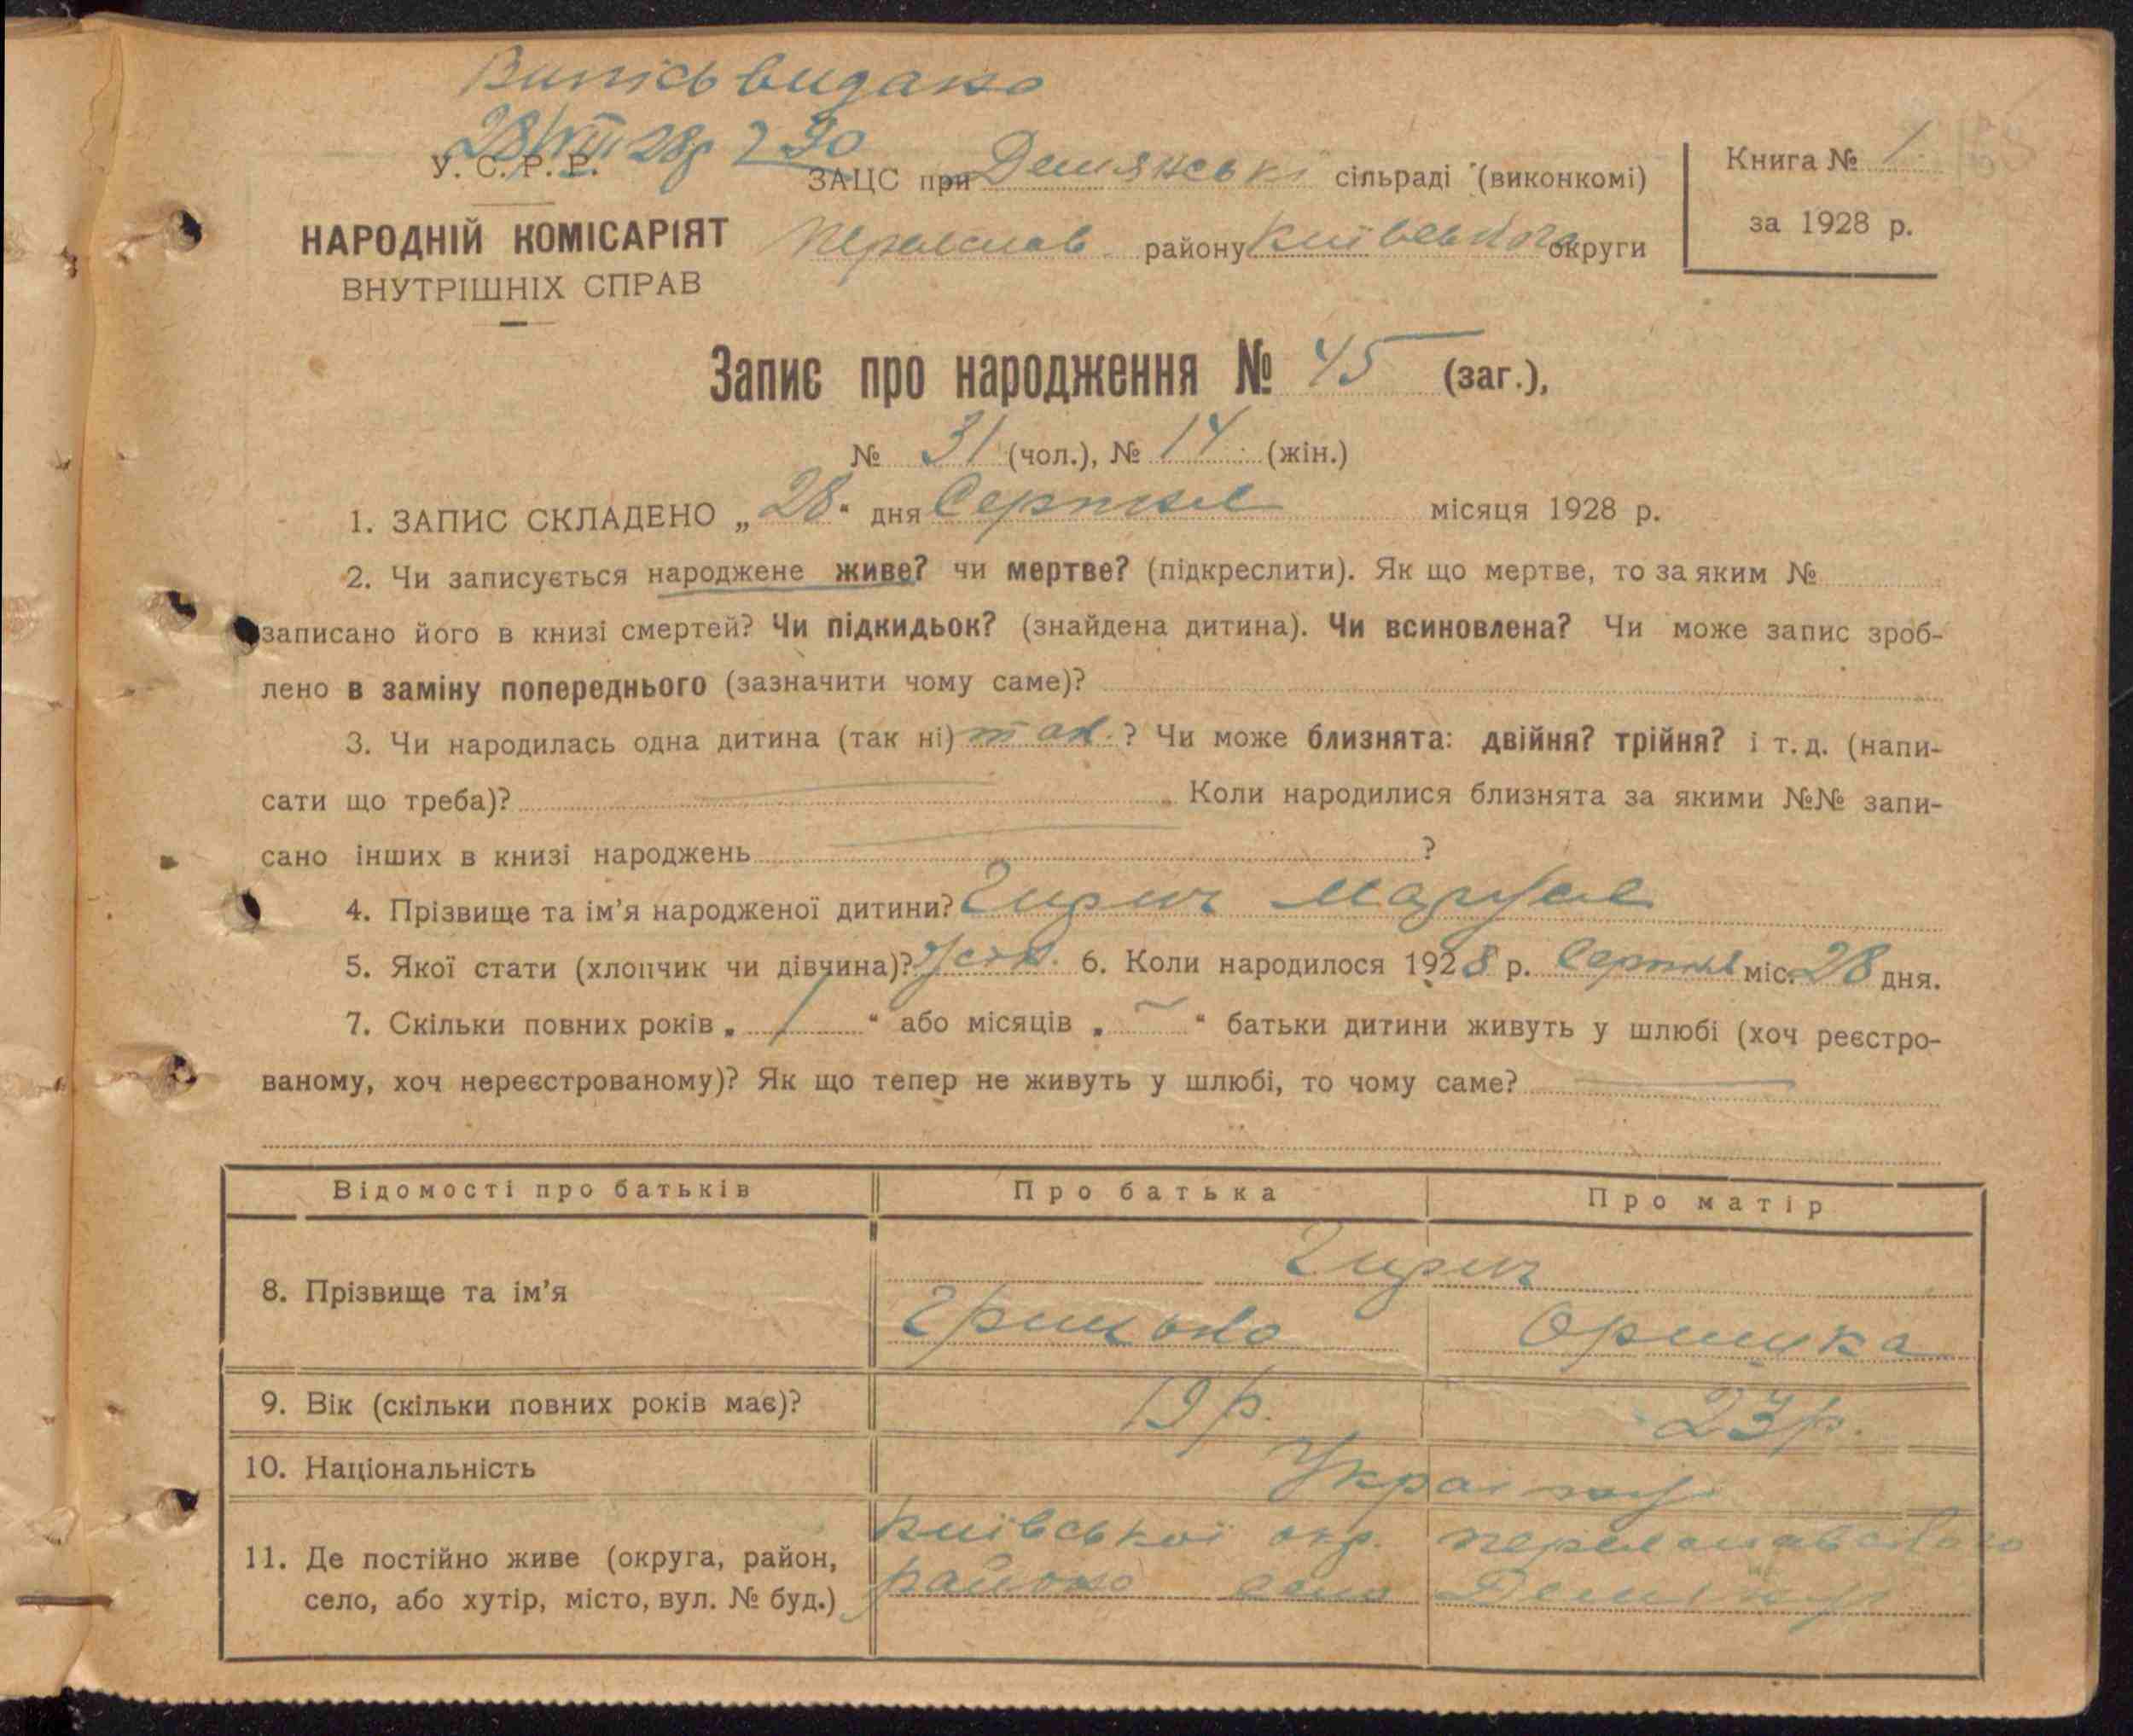 Випісь видано
28/VIII 28р 290
У. С. Р. Р.
ЗАЦС при Демянські сільраді (виконкомі)
Книга № 1
НАРОДНІЙ КОМІСАРІЯТ
Переяслав району Київської округи
за 1928 р.
ВНУТРІШНІХ СПРАВ
Запис про народження № 45 (заг.),
№ 31 (чол.), № 14 (жін.)
1. ЗАПИС СКЛАДЕНО „28“ дня Серпня місяця 1928 р.
2. Чи записується народжене живе? чи мертве? (підкреслити). Як що мертве, то за яким №
записано його в книзі смертей? Чи підкидьок? (знайдена дитина). Чи всиновлена? Чи може запис зроб-
лено в заміну попереднього (зазначити чому саме)?
3. Чи народилась одна дитина (так ні) так.? Чи може близнята: двійня? трійня? і т. д. (напи-
сати що треба)? Коли народилися близнята за якими №№ запи-
сано інших в книзі народжень ?
4. Прізвище та ім’я народженої дитини? Гирич Маруся
5. Якої стати (хлопчик чи дівчина)? жін. 6. Коли народилося 1928 р. Серпня міс. 28 дня.
7. Скільки повних років „ 1 “ або місяців „ — “ батьки дитини живуть у шлюбі (хоч реєстро-
ваному, хоч нереєстрованому)? Як що тепер не живуть у шлюбі, то чому саме?
Відомості про батьків Про батька Про матір
8. Прізвище та ім’я
Гирич
Грицько Оришка
9. Вік (скільки повних років має)? 19 р. 23 р.
10. Національність Українці
11. Де постійно живе (округа, район,
село, або хутір, місто, вул. № буд.)
Київської окр. Переяславського
району село Демянці